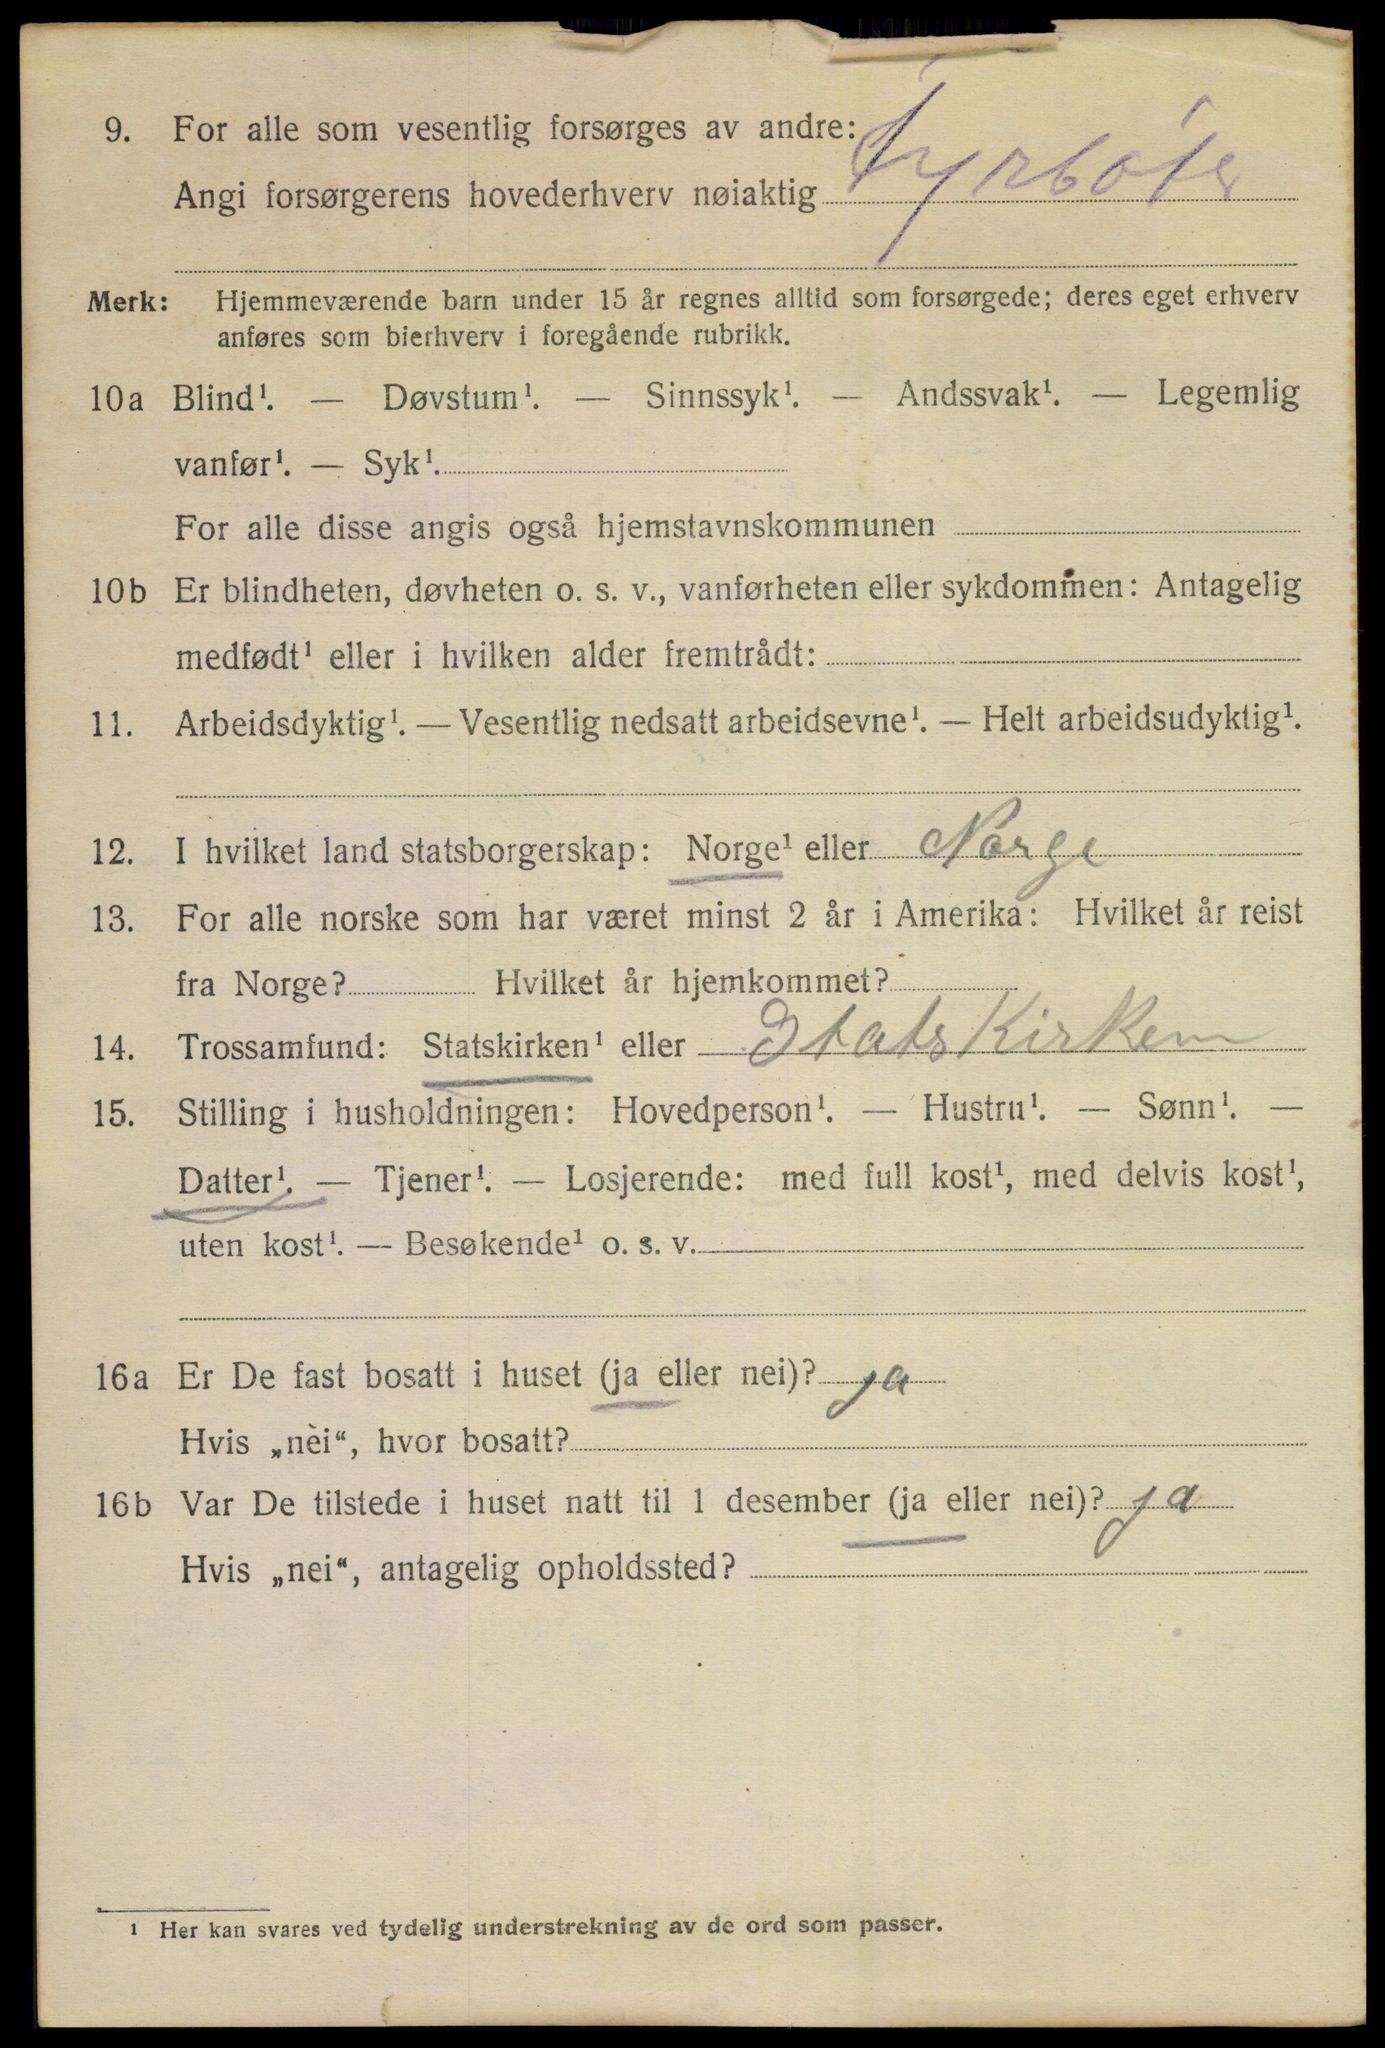 9. For alle som vesentlig forsørges av andre:
Angi forsørgerens hovederhverv nøiaktig Fyrböter
Merk: Hjemmeværende barn under 15 år regnes alltid som forsørgede; deres eget erhverv
anføres som bierhverv i foregående rubrikk.
10a Blind¹. — Døvstum¹. — Sinnssyk¹. — Andssvak¹. — Legemlig
vanfør¹. — Syk¹.
For alle disse angis også hjemstavnskommunen
10b Er blindheten, døvheten o. s. v., vanførheten eller sykdommen: Antagelig
medfødt¹ eller i hvilken alder fremtrådt:
11. Arbeidsdyktig¹. — Vesentlig nedsatt arbeidsevne¹. — Helt arbeidsudyktig¹.
12. I hvilket land statsborgerskap: Norge¹ eller Norge
13. For alle norske som har været minst 2 år i Amerika: Hvilket år reist
fra Norge? Hvilket år hjemkommet?
14. Trossamfund: Statskirken¹ eller Stats Kirken
15. Stilling i husholdningen: Hovedperson¹. — Hustru¹. — Sønn¹. —
Datter¹. — Tjener¹. — Losjerende: med full kost¹, med delvis kost¹,
uten kost¹. — Besøkende¹ o. s. v.
16a Er De fast bosatt i huset (ja eller nei)? ja
Hvis „nei“, hvor bosatt?
16b Var De tilstede i huset natt til 1 desember (ja eller nei)? ja
Hvis „nei“, antagelig opholdssted?
¹ Her kan svares ved tydelig understrekning av de ord som passer.